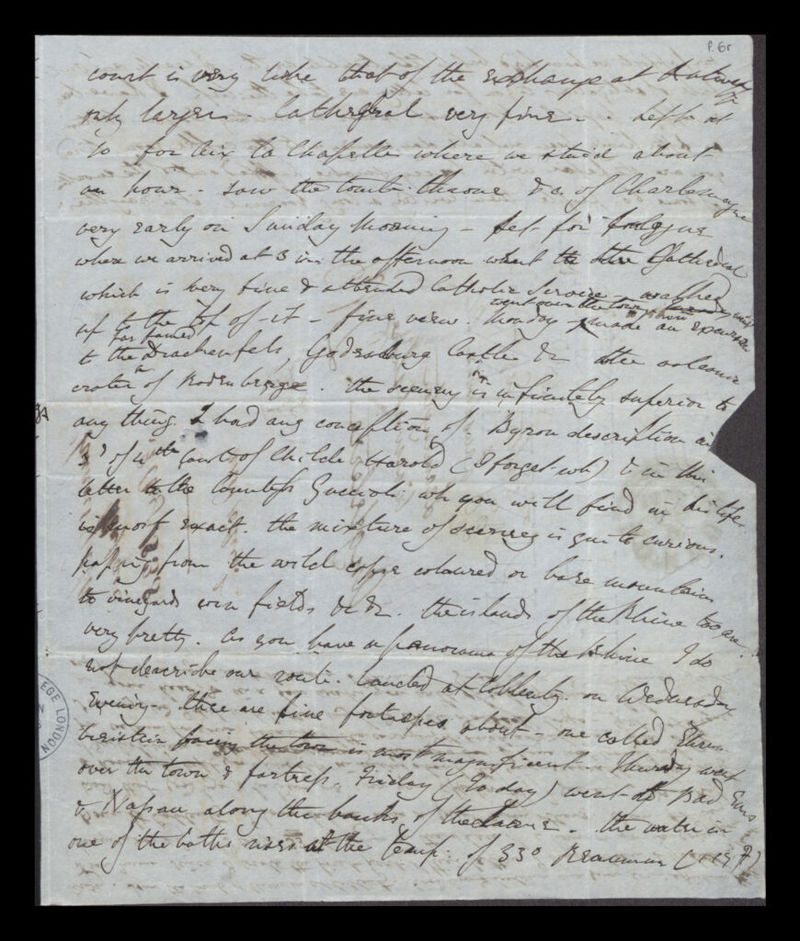 P. 6r
court is very like that of the exchange at Antwerp
only larger - Cathedral very fine - . Left at
10 for Aix la Chapelle where we staid about
an hour - saw the tomb throne &c of Charlemagne
very early on Sunday Morning - left for Cologne
where we arrived at 3 in the afternoon went to the Cathedral
which is very fine & attended Catholic Service - washed
went over the town then
up to the top of it - fine view. Monday made an excursion
far famed
to the Drachenfels, Godesburg Castle & the volcanic
crater of Rodenberge. the scenery is infinitely superior to
any thing I had any conception of Byron description in
3d of 4th Canto of Childe Harold (I forget wh) & in his
letter to the Countess Guccioli wh you will find in his life
is most exact. the mixture of scenery is quite curious.
passing from the wild copse coloured or bare mountains
to vineyards corn fields &c &c. the islands of the Rhine too are
very pretty. As you have a panorama of the Rhine I do
not describe our route. landed at Coblentz on Wednesday
Evening - there are fine fortresses about - one called Ehren
breitstein facing the town is most magnificent Thursday went
over the town & fortress - Friday (to day) went to Bad Ems
& Nassau along the banks of the - the water in
one of the baths rises at the temp. of 33° Reaumur
EGE LONDON